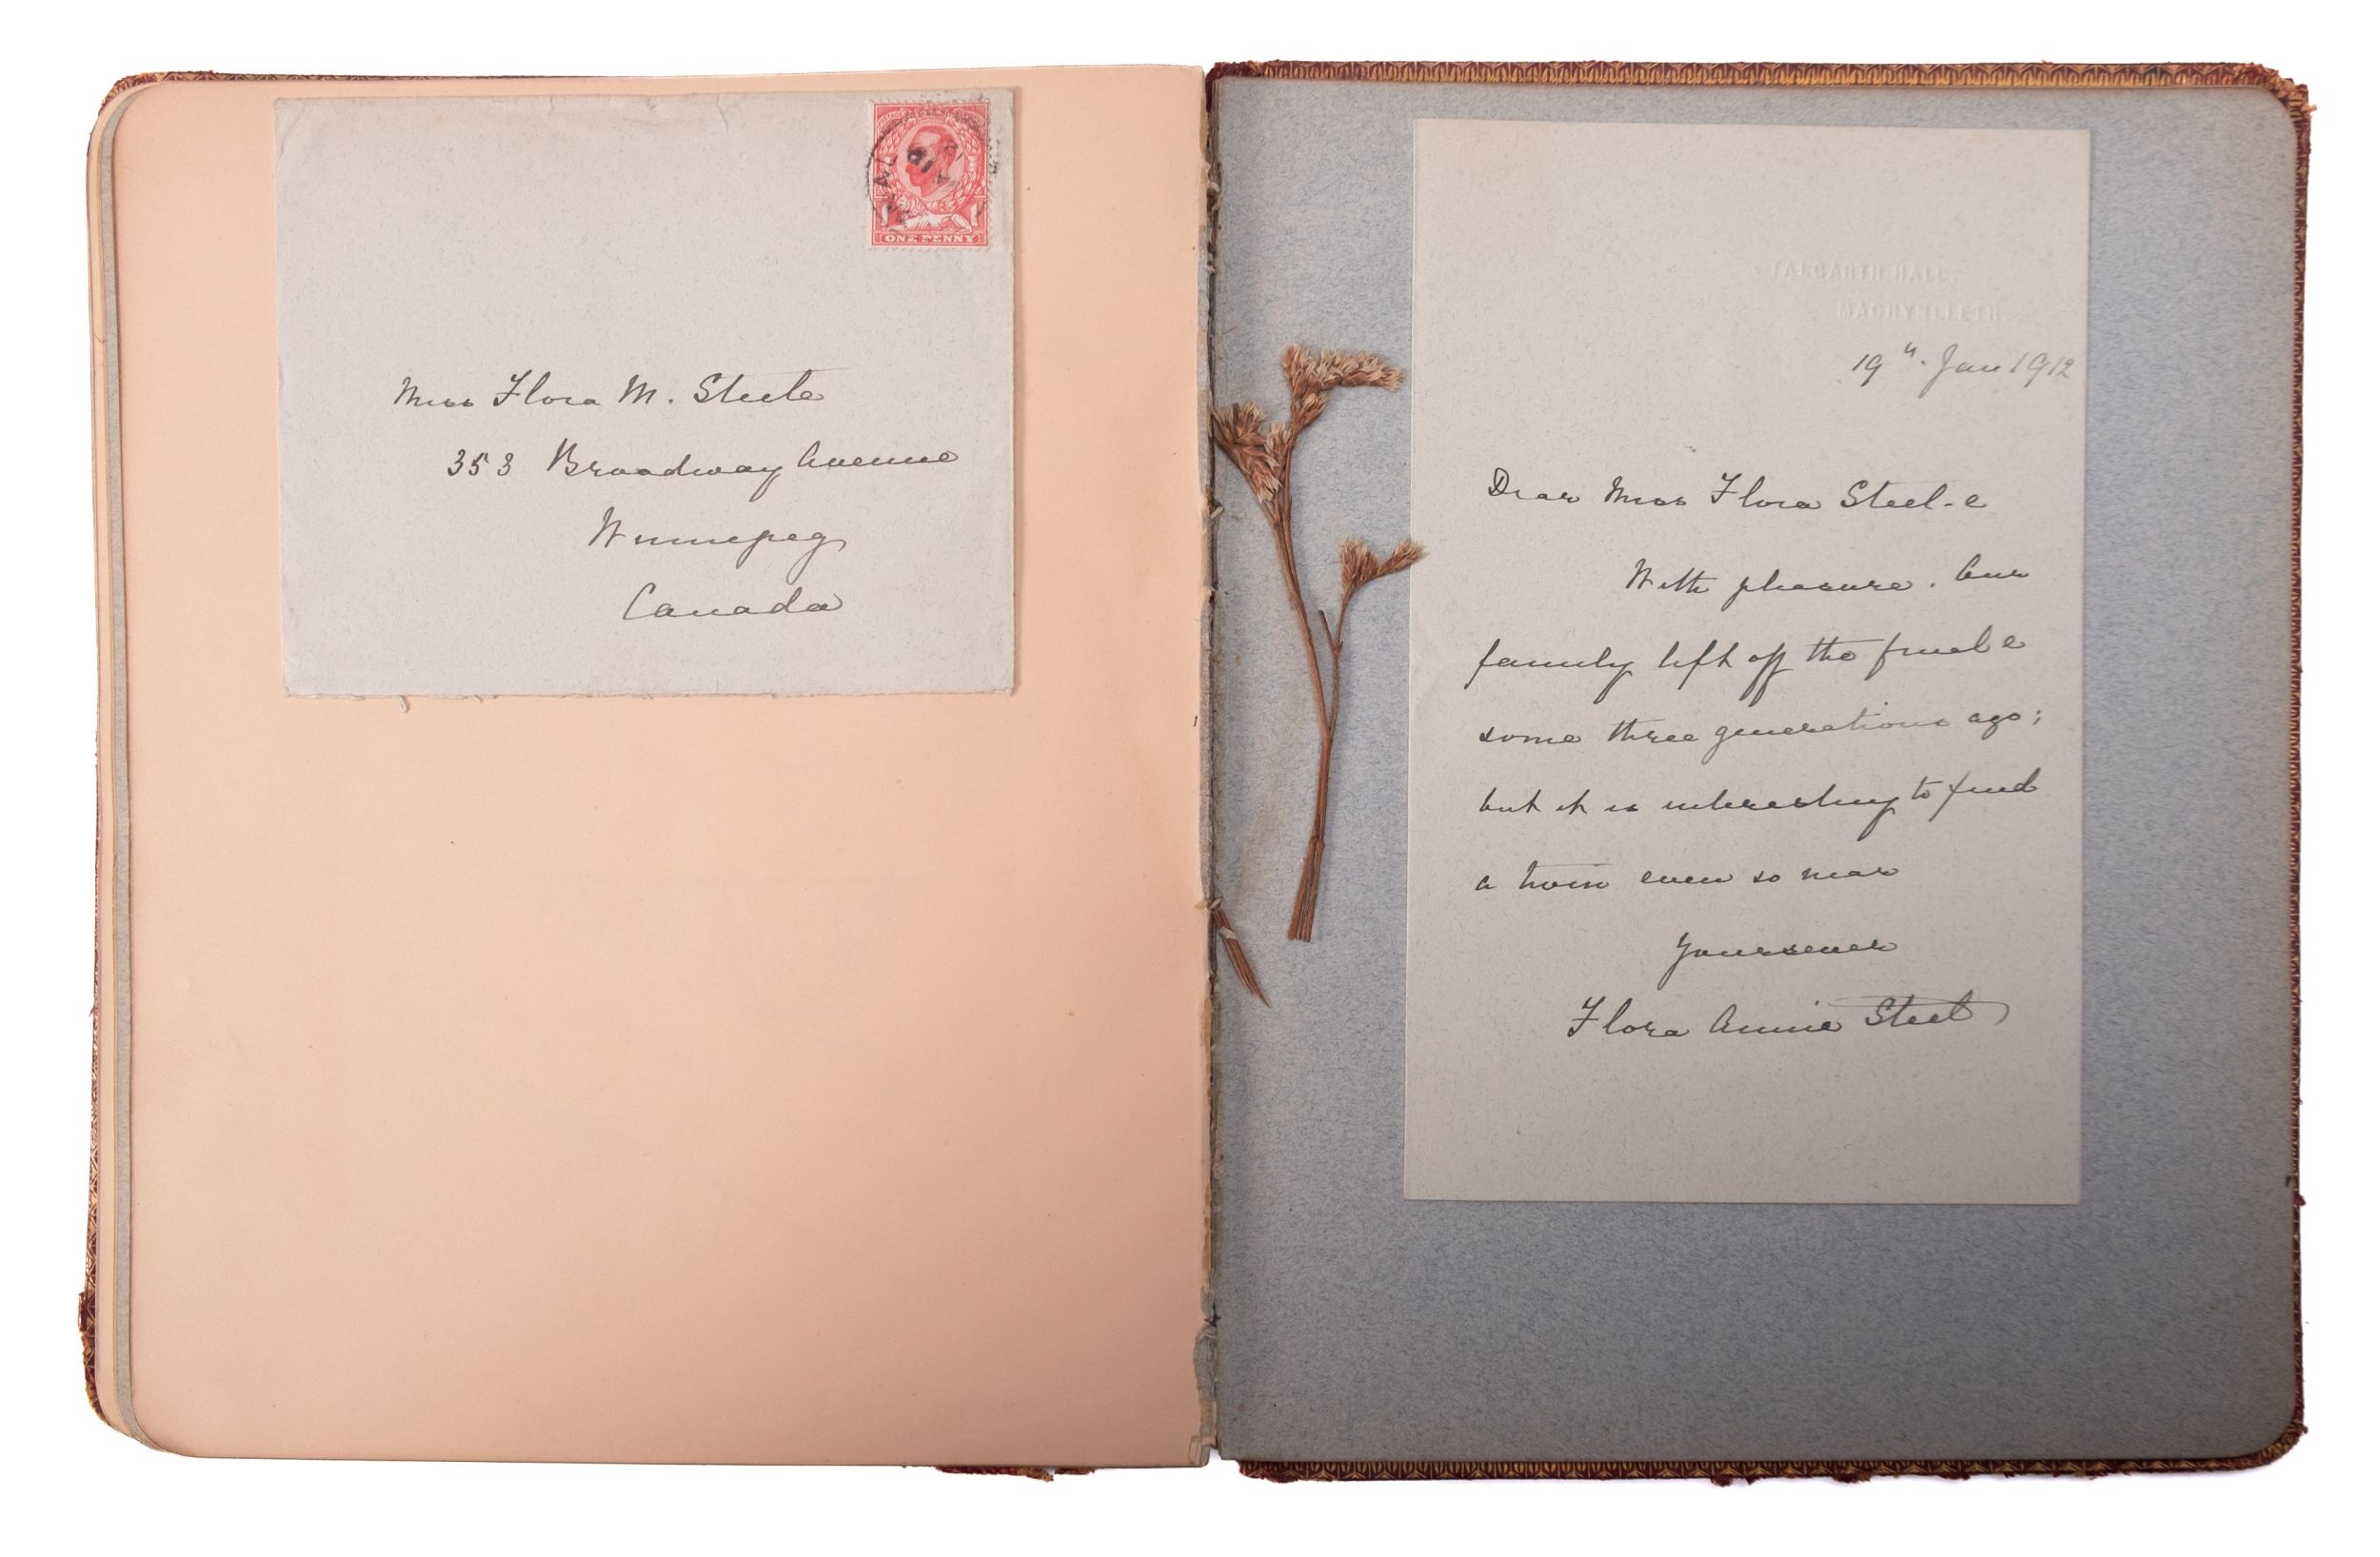 ONE PENNY
Miss Flora M. Steele
353 Broadway Avenue
Winnipeg
Canada
TALGARTH HALL.
MACHYNLLETH
19th. Jan 1912
Dear Miss Flora Steel-e
With pleasure. Our
family left off the final e
some three generations ago;
but it is interesting to find
a twin even so near
Yours ever
Flora Annie Steel